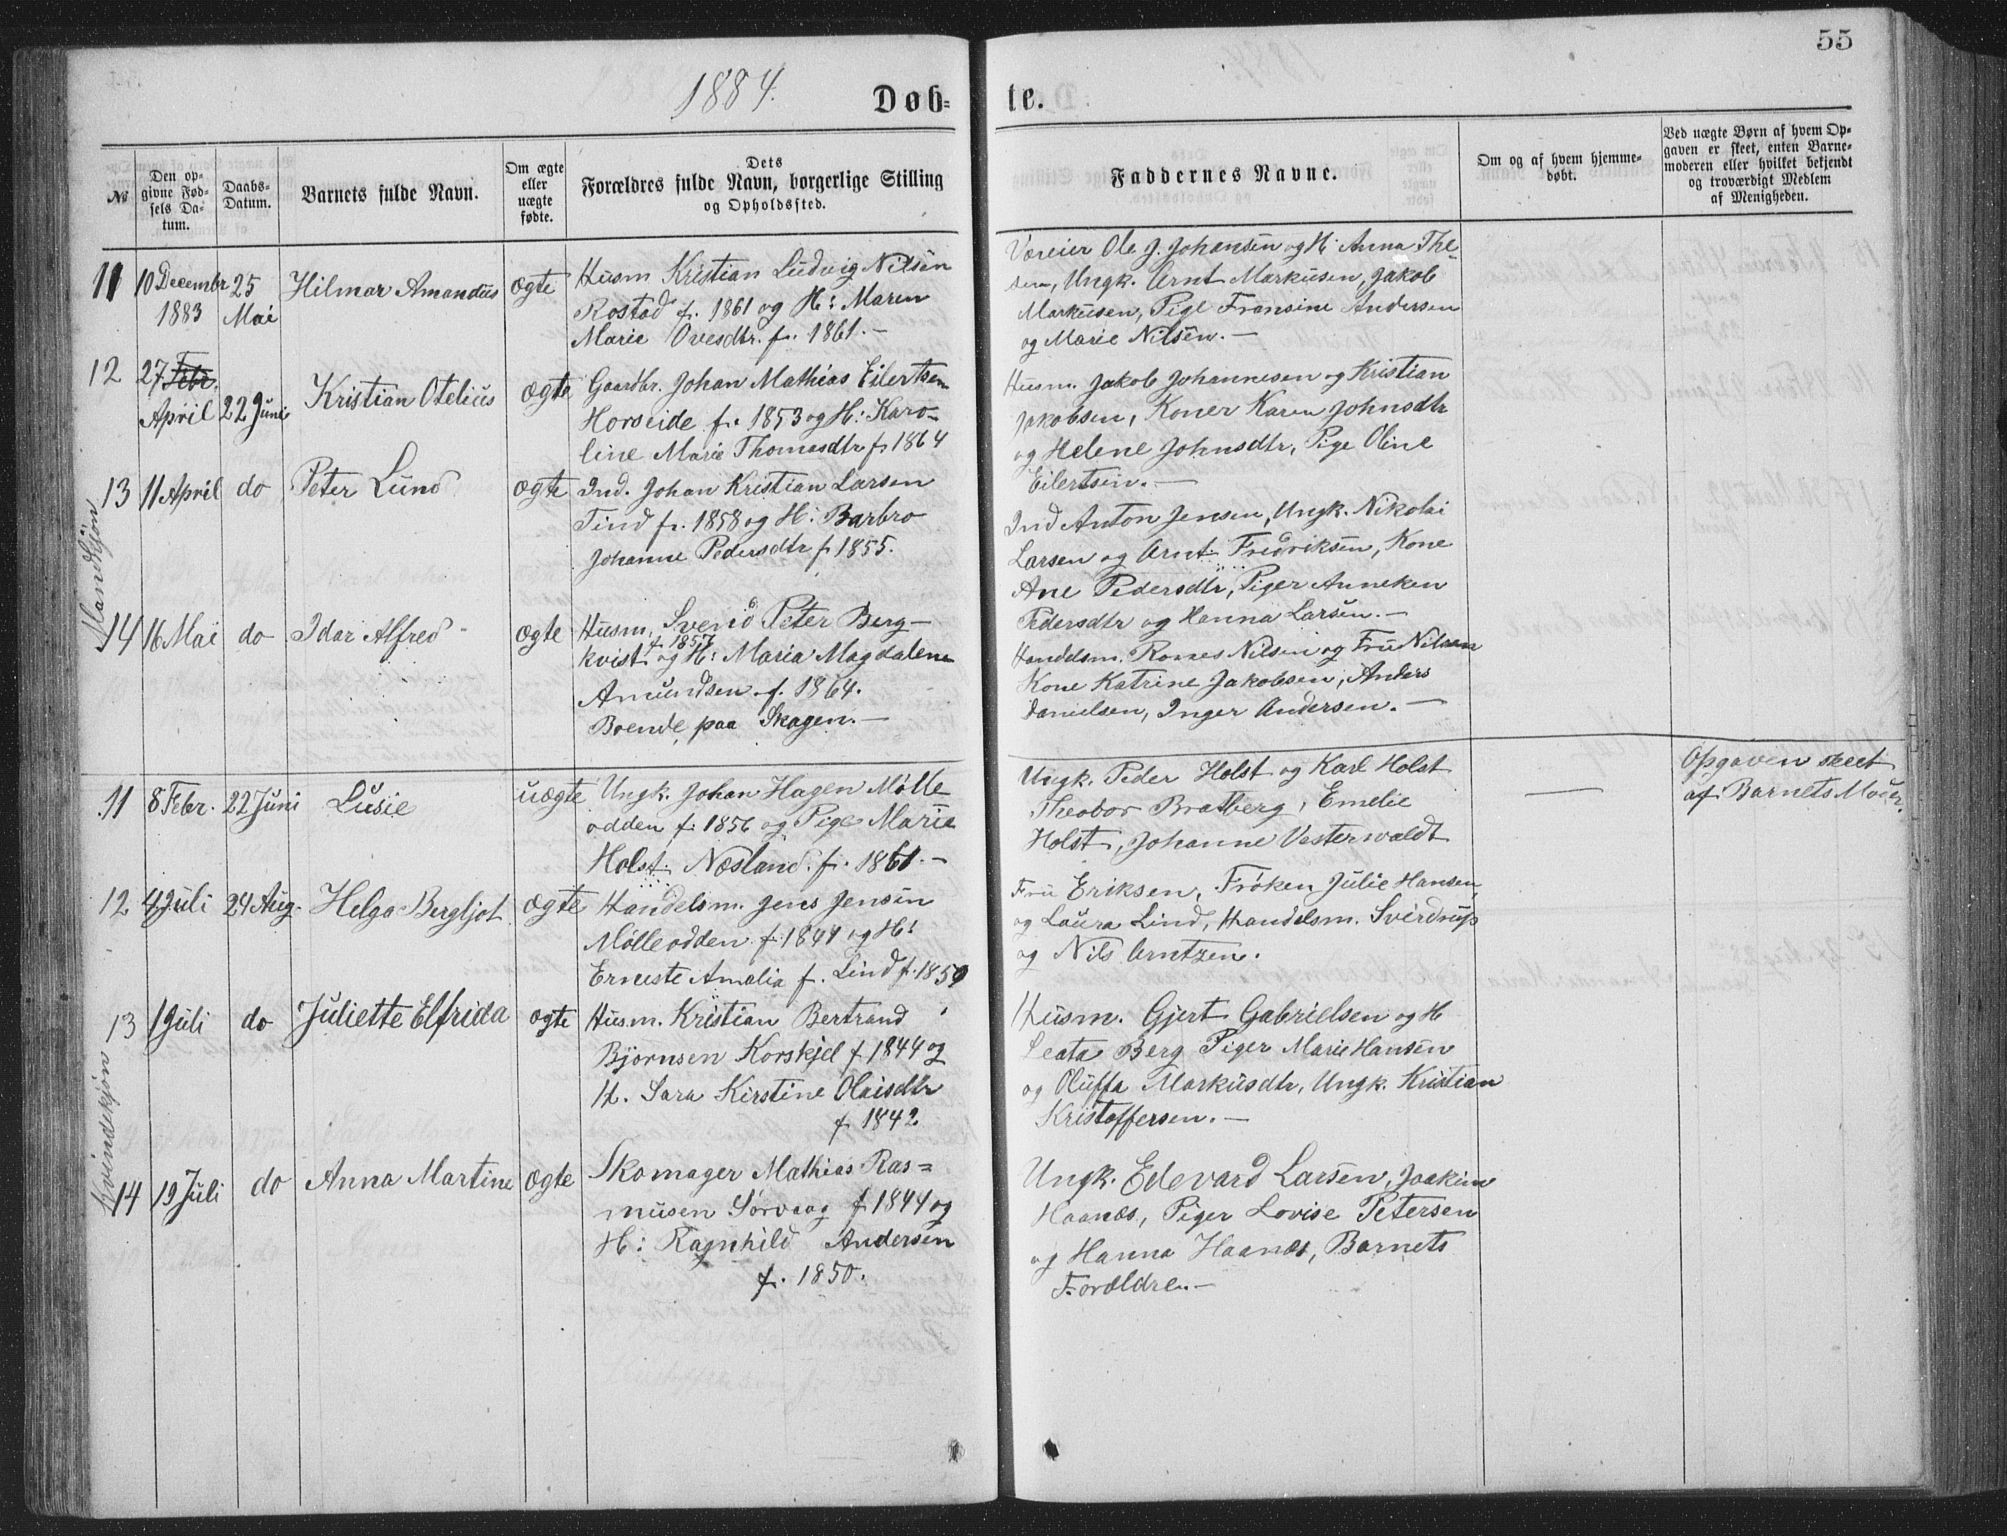 55
1884.
Døb=
te.
№
Den op-
givne Fød-
sels Da-
tum.
Daabs-
Datum.
Barnets fulde Navn.
Om ægte
eller
uægte
fødte.
Dets
Forældres fulde Navn, borgerlige Stilling
og Opholdssted.
Faddernes Navne.
Om og af hvem hjemme-
døbt.
Ved uægte Børn af hvem Op-
gaven er skeet, enten Barne-
moderen eller hvilket bekjendt
og troværdigt Medlem
af Menigheden.
Mandkjøn
11 10 Decembr 25 Hilmar Amandus ægte Husm Kristian Ludvig Nilsen
1883 Mai Rostad f. 1861 og H: Maren
Marie Ovesdtr. f. 1861.—
Væreier Ole J. Johansen og H: Anna The-
sen, Ungk. Arnt Markusen, Jakob
Markusen, Pige Fransine Andersen
og Marie Nilsen.—
12 27 Febr. Kristian Otelius ægte Gaardbr. Johan Mathias Eilertsen
April 22 Juni Horseide f. 1853 og H: Karo-
line Marie Thomasdtr f. 1864
Husm. Jakob Johannesen og Kristian
Jakobsen, Koner Karen Johnsdtr
og Helene Johnsdtr, Pige Oline
Eilertsen.—
13 11 April do Peter Lund ægte Ind. Johan Kristian Larsen
Tind f. 1858 og H: Barbro
Johanne Pedersdtr f. 1855.
Ind Anton Jensen, Ungk. Nikolai
Larsen og Arnt Fredriksen, Kone
Ane Pedersdtr, Piger Anneken
Pedersdtr og Hanna Larsen.—
14 16 Mai do Idar Alfred ægte Husm. Svend Peter Berg-
f. 1857
kvist og H: Maria Magdalena
Amundsen f. 1864.
Boende paa Skagen.—
Handelsm. Nilsen og Fru Nilsen
Kone Katrine Jakobsen, Anders
Danielsen, Inger Andersen.—
Kvindekjøn
11 8 Febr. 22 Juni Lusie uægte Ungk. Johan Hagen Mølle
odden f. 1856 og Pige Marie
Holst Næsland f. 1861.—
Ungk. Peder Holst og Karl Holst
Theodor Bratberg, Emelie
Holst, Johanne Vesterwaldt
—
Opgaven skeet
af Barnets Moder.
12 4 Juli 24 Aug. Helga Bergljot ægte Handelsm. Jens Jensen
Mølleodden f. 1841 og H:
Erneste Amalia f. Lind f. 1850
Fru Eriksen, Frøken Julie Hansen,
og Laura Lind, Handelsm. Sverdrup
og Nils Arntzen.
13 1 Juli do Juliette Elfrida ægte Husm. Kristian Bertrand
Bjørnsen Korskjel f. 1844 og
H. Sara Kirstine Olaisdtr
f 1842
Husm. Gjert Gabrielsen og H
Leata Berg Piger Marie Hansen
og Oluffa Markusdtr, Ungk. Kristian
Kristoffersen.—
14 19 Juli do Anna Martine ægte Skomager Mathias Ras=
musen Sørvaag f 1844 og
H: Ragnhild Andersen
f. 1850.
Ungk. Edevard Larsen, Joakim
Haanes, Piger Lovise Petersen
og Hanna Haanes, Barnets
Forældre.—